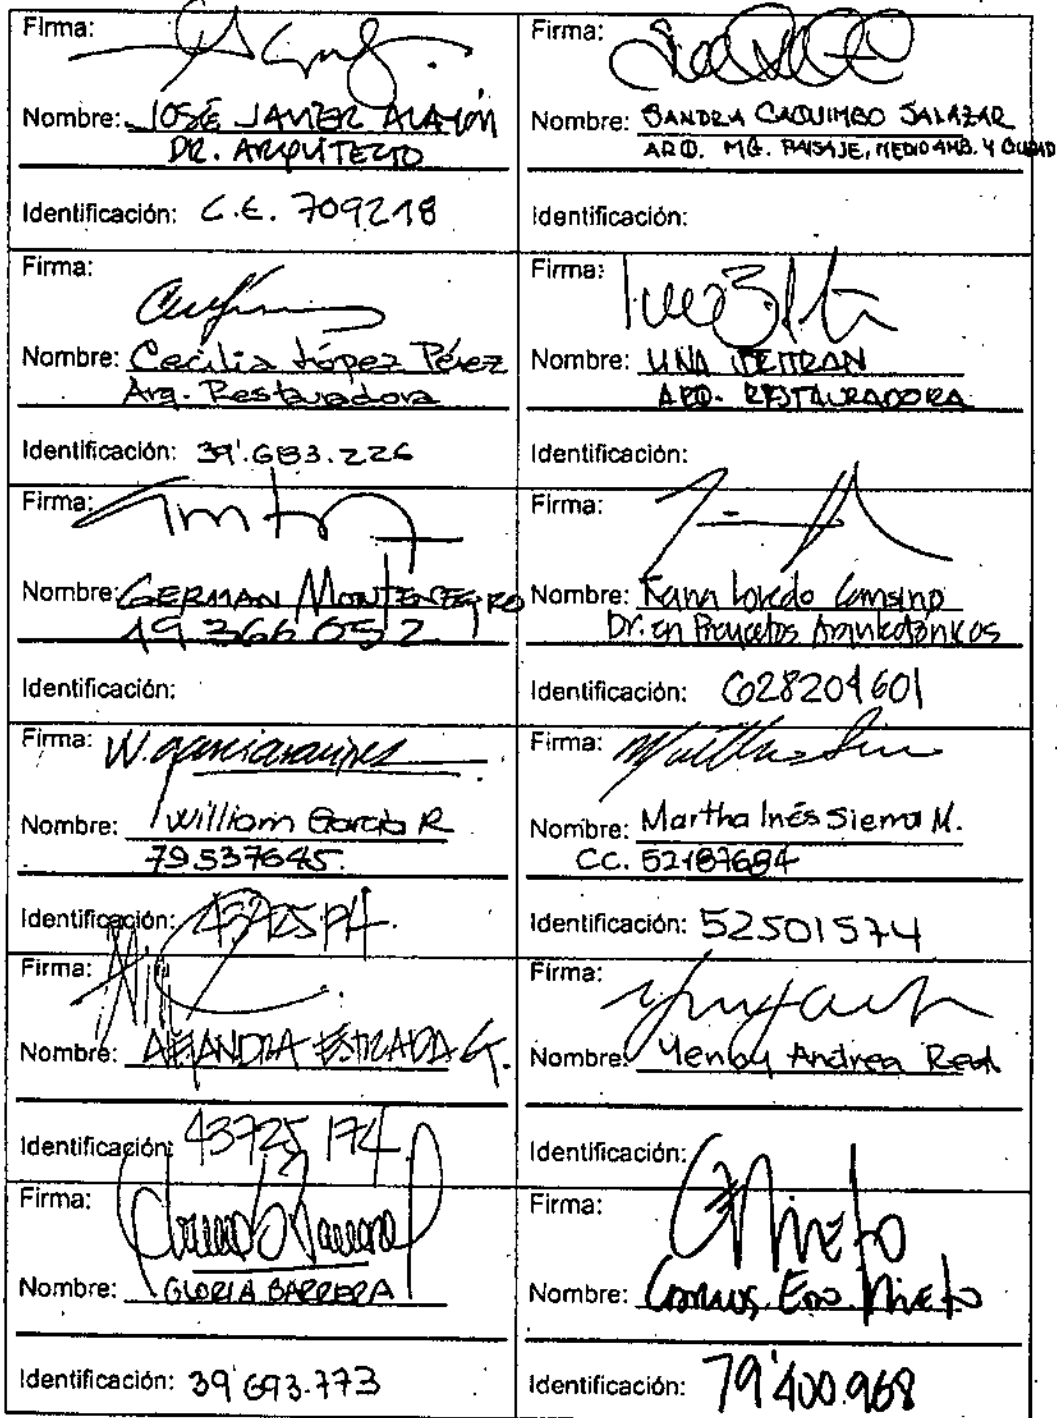 Firma:
Nombre: JOSÉ JAVIER ALAYÓN
DR. ARQUITECTO
Identificación: C.E. 709218
Firma:
Nombre: SANDRA CAQUIMBO SALAZAR
ARQ. MG. PAISAJE, MEDIO AMB. Y CIUDAD
Identificación:
Firma:
Nombre: Cecilia López Pérez
Arq. Restauradora
Identificación: 39'683.226
Firma:
Nombre: LINA BELTRAN
ARQ. RESTAURADORA
Identificación:
Firma:
Nombre: GERMAN MONTENEGRO
19.366.052
Identificación:
Firma:
Nombre: Loredo Cansino
Dr. en Proyectos Arquitectónicos
Identificación: G28204601
Firma: W. garciaramirez
Nombre: William García R
79537645.
Identificación: 43725174.
Firma:
Nombre: Martha Inés Sierra M.
CC. 52187684
Identificación: 52501574
Firma:
Nombre: ALEJANDRA ESTRADA G.
Identificación: 43725 174
Firma:
Nombre: Yenny Andrea Real
Identificación:
Firma:
Nombre: GLORIA BARRERA
Identificación: 39'693.773
Firma: CNieto
Nombre: Carlos Eno Nieto
Identificación: 79'400.968